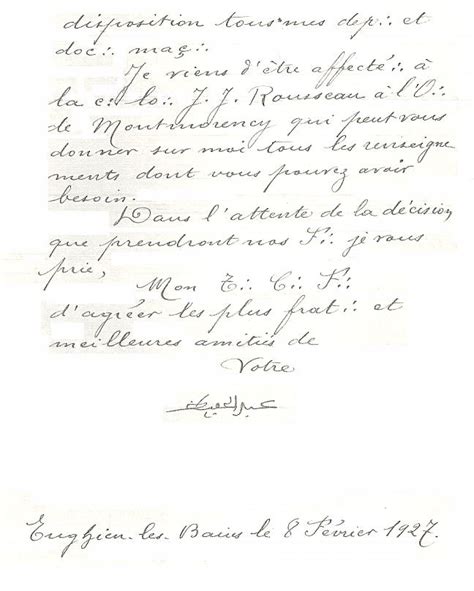 disposition tous mes dep∴ et
doc∴ maç∴
Je viens d'être affecté∴ à
la c∴ lo∴ J. J. Rousseau à l'O∴
de Montmorency qui peut vous
donner sur moi tous les renseigne
ments dont vous pouvez avoir
besoin.
Dans l'attente de la décision
que prendront nos F∴ je vous
prie,
Mon T∴ C∴ F∴
d'agréer les plus frat∴ et
meilleures amitiés de
Votre
عبد الحفيظ
Enghien-les-Bains le 8 Février 1927.